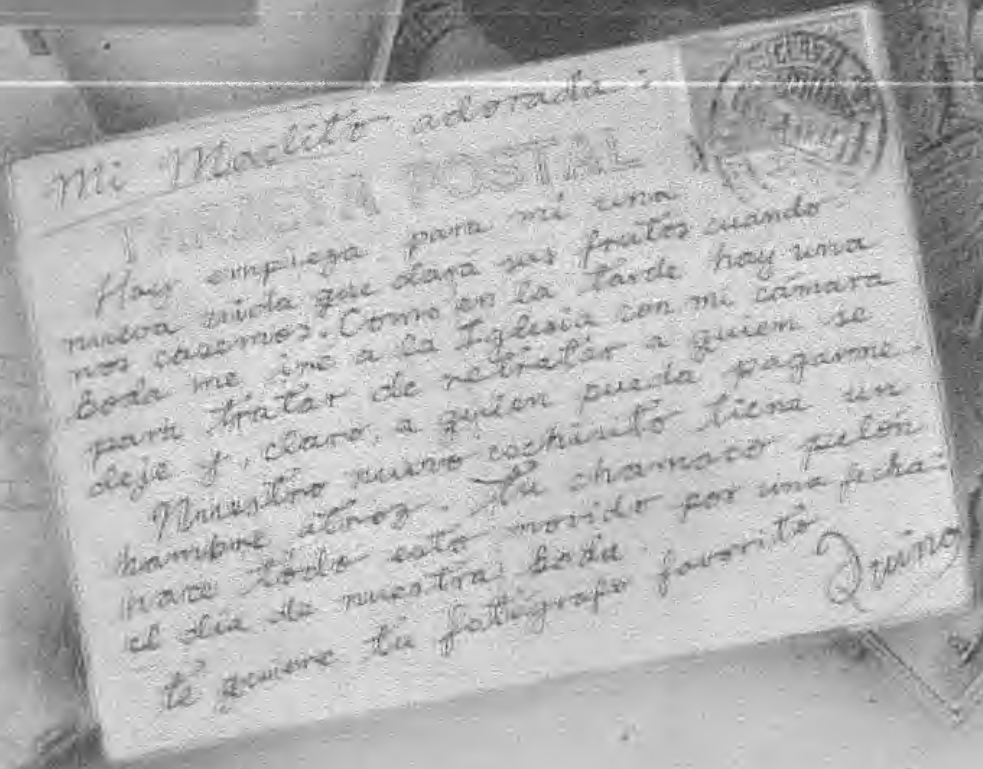 Mi Maclito adorada:
TARJETA POSTAL
Hoy empieza para mí una
nueva vida que dará sus frutos cuando
nos casemos. Como en la tarde hay una
boda me iré a la Iglesia con mi cámara
para tratar de retratar a quien se
deje y, claro, a quien pueda pagarme.
Nuestro nuevo cochinito tiene un
hambre atroz. Tu chamaco pelón
hace todo esto movido por una fecha:
el día de nuestra boda
te quiere tu fotógrafo favorito
Quino